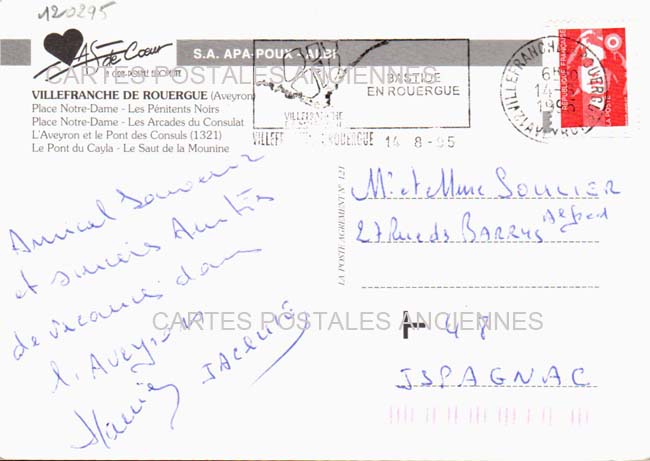 120295
AS de Cœur
S.A. APA-POUX - ALBI
CARTES POSTALES ANCIENNES
VILLEFRANCHE DE ROUERGUE (Aveyron)
Place Notre-Dame - Les Pénitents Noirs
Place Notre-Dame - Les Arcades du Consulat
L'Aveyron et le Pont des Consuls (1321)
Le Pont du Cayla - Le Saut de la Mounine
BASTIDE
EN ROUERGUE
VILLEFRANCHE
ROUERGUE 14-8-95
14-
1995
12 AVEYRON
REPUBLIQUE FRANÇAISE
LA POSTE
LA POSTE AGREMENT N° 121
Amical Souvenir
et sincères Amitiés
de vacances dans
l'Aveyron
JACQUES
Mr et Mme SOULIER
Alfred
27 Rue des BARRYS
A- 48
ISPAGNAC
CARTES POSTALES ANCIENNES